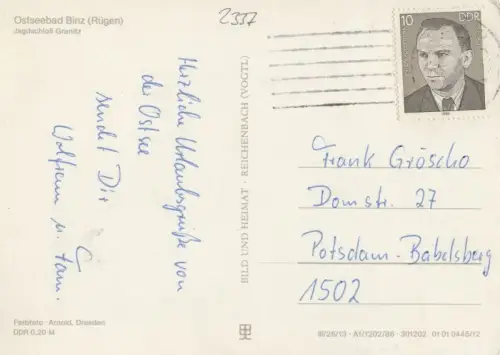 Ostseebad Binz (Rügen)
Jagdschloß Granitz
2337
Herzliche Urlaubsgrüße von
der Ostsee
sendet Dir
Wolfram u. Fam.
Farbfoto: Arnold, Dresden
DDR 0,20 M
BILD UND HEIMAT · REICHENBACH (VOGTL)
10 DDR
Frank Gröscho
Domstr. 27
Potsdam-Babelsberg
1502
III/26/13 · A1/1202/86 · 301202 01 01 0446/12